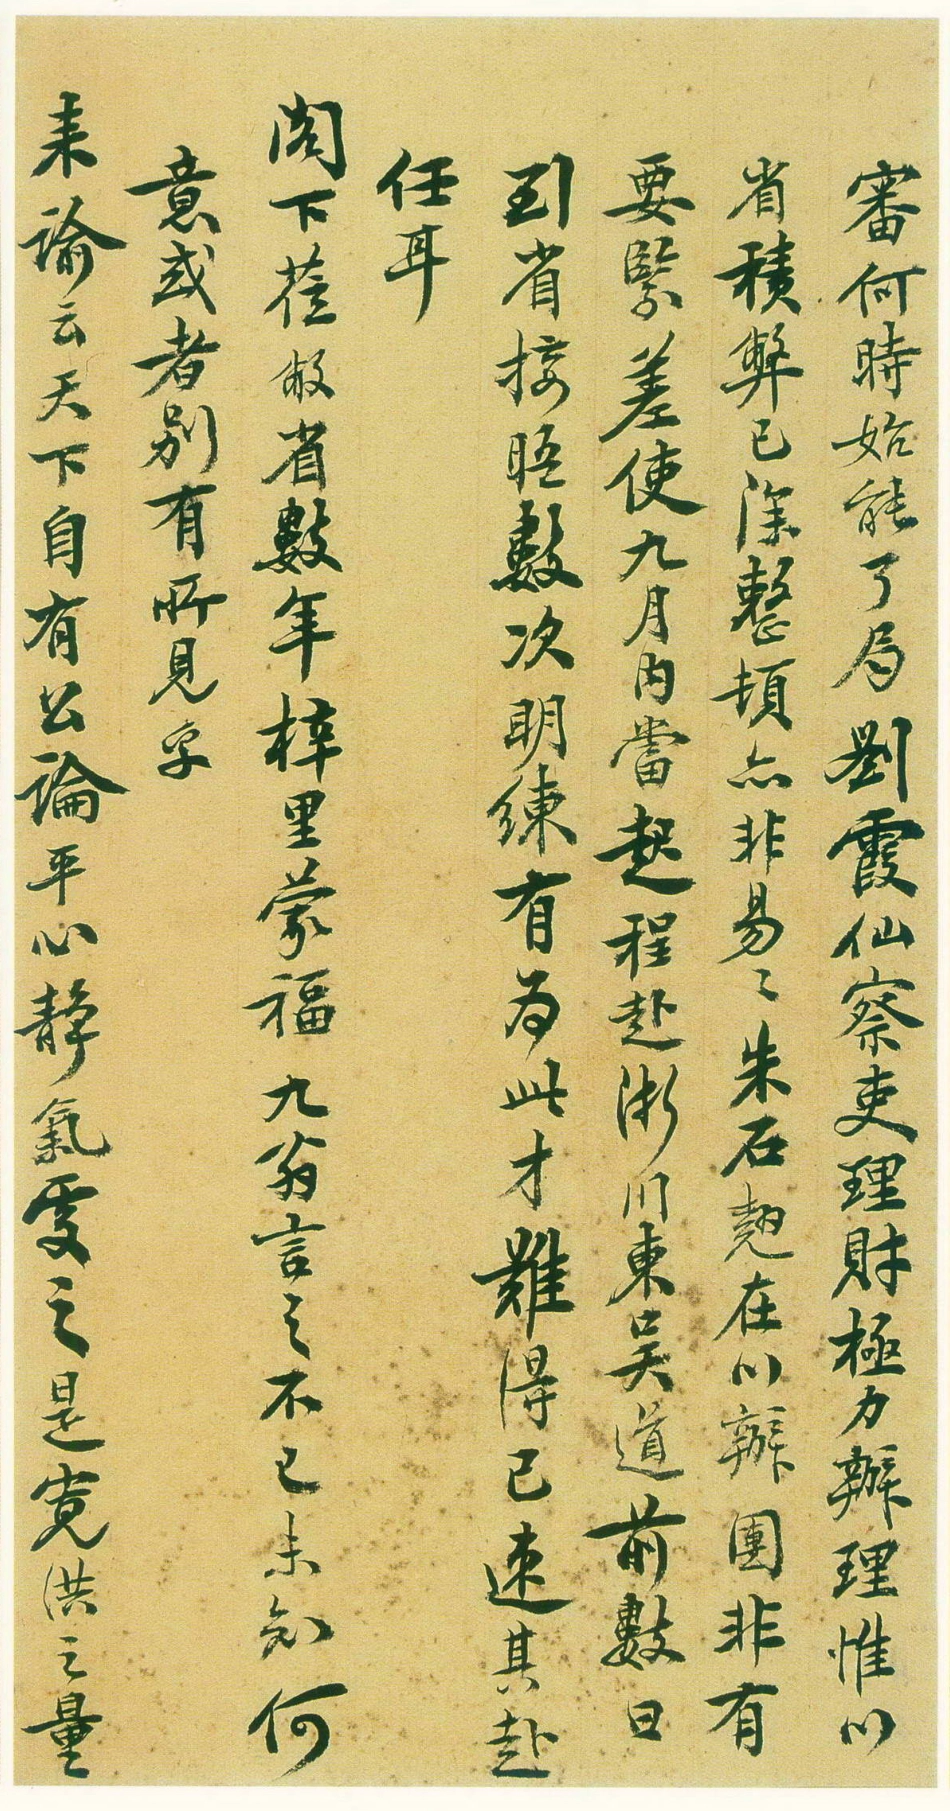 審何時始能了局劉霞仙察吏理財極力辦理惟川
省積弊已深整頓亦非易々朱石翹在川辦團非有
要緊差使九月內當起程赴浙川東吳道前數日
到省接晤數次明練有為此才難得已速其赴
任耳
閣下蒞敝省數年梓里蒙福九翁言之不已未知何
意或者別有所見乎
来諭云天下自有公論平心靜氣處之是寬洪之量